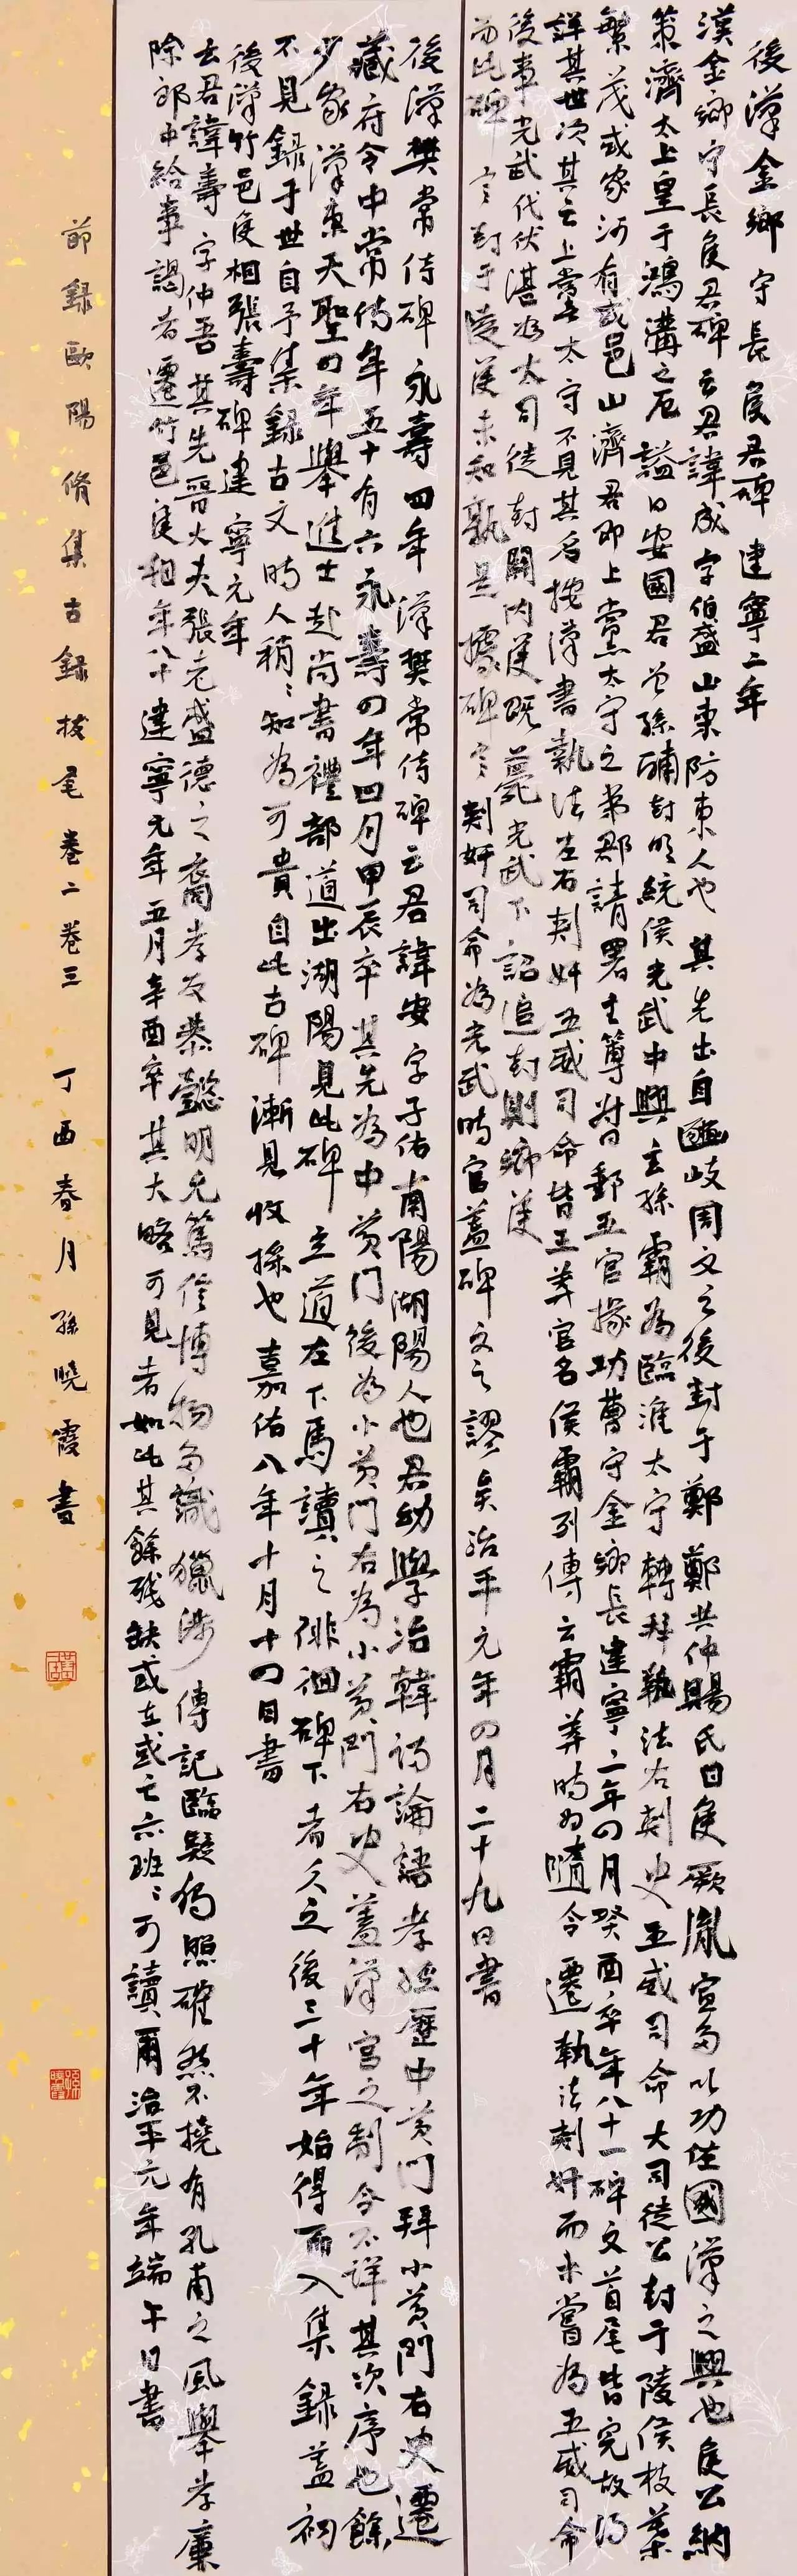 後漢金鄉守長侯君碑 建寧二年
漢金鄉守長侯君碑云君諱成字伯盛山東防東人也其先出自豳岐周文之後封于鄭鄭共仲賜氏曰侯厥胤宣多以功佐國漢之興也侯公納
策濟太上皇于鴻溝之厄謚曰安國君曾孫酺封明統侯光武中興玄孫霸為臨淮太守轉拜執法右刺史五威司命大司徒公封于陵侯枝葉
繁茂或家河有或邑山濟君即上黨太守之弟郡請署主簿督郵五官掾功曹守金鄉長建寧二年四月癸酉卒年八十一碑文首尾皆完故得
詳其世次其云上黨太守不見其名按漢書執法左右刺奸五威司命皆王莽官名侯霸列傳云霸莽時為隨令遷執法刺奸而未嘗為五威司命
後事光武代伏湛為大司徒封關內侯既薨光武下詔追封則鄉侯
而此碑言封于陵侯未知孰是據碑言刺奸司命為光武時官蓋碑文之謬矣治平元年四月二十九日書
後漢樊常侍碑 永壽四年漢樊常侍碑云君諱安字子佑南陽湖陽人也君幼學治韓詩論語孝經歷中黃門拜小黃門右史遷
藏府令中常侍年五十有六永壽四年四月甲辰卒其先為中黃門後為小黃門右為小黃門右史蓋漢官之制今不詳其次序也餘
少家漢東天聖四年舉進士赴尚書禮部道出湖陽見此碑立道左下馬讀之徘徊碑下者久之後三十年始得而入集錄蓋初
不見錄于世自予集錄古文時人稍〻知為可貴自此古碑漸見收採也嘉佑八年十月十四日書
後漢竹邑侯相張壽碑建寧元年
云君諱壽字仲吾其先晉大夫張老盛德之裔孝友恭懿明允篤信博物多識獵涉傳記臨疑獨照確然不撓有孔甫之風舉孝廉
除郎中給事謁者遷竹邑侯相年八十建寧元年五月辛酉卒其大略可見者如此其餘殘缺或在或亡亦班〻可讀爾治平元年端午日書
節錄歐陽脩集古錄拔尾卷二卷三 丁酉春月孫曉霞書